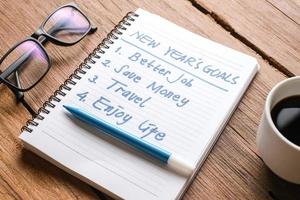 NEW YEAR'S GOALS
1. Better job
2. Save Money
3. Travel
4. Enjoy life